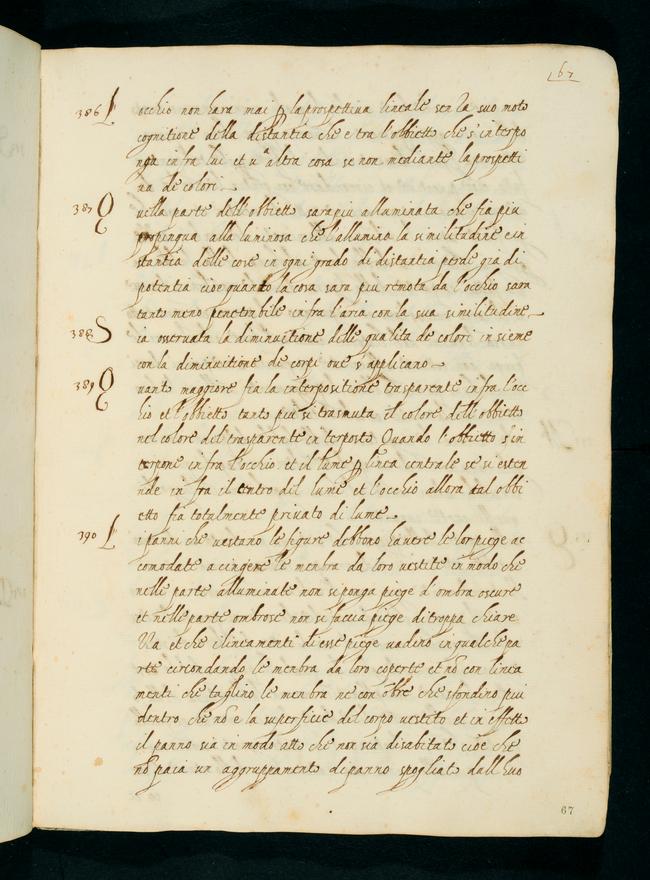 67
386 L occhio non hara mai p la prospettiua lineale senza suo moto
cognitione della distantia che e tra l'obbietto che s'interpo
nga infra lui et un altra cosa se non mediante la prospetti
ua de colori.
387 Q uella parte dell'obbietto sara piu alluminata che fia piu
propinqua alla luminosa che l'allumino la similitudine e in
stantia delle cose in ogni grado di distantia perde gra di
potentia cioe quanto la cosa sara piu remota da l'occhio sara
tanto meno penetrabile infra l'aria con la sua similitudine
388 S ia osseruata la diminuitione delle qualita de colori insieme
con la diminuitione de corpi oue s'applicano
389 Q uanto maggiore fia la interpositione trasparente infra l'occ
hio et l'obbietto tanto piu si trasmuta il colore dell'obbietto
nel colore del trasparente interposto Quando l'obbietto s'in
terpone infra l'occhio et il lume p linea centrale se si esten
nde in fra il centro del lume et l'occhio allora tal obbi
etto fia totalmente priuato di lume
390 L i panni che uestano le figure debbono hauere le lor piege ac
comodate a cingere le menbra da loro uestite in modo che
nelle parte alluminate non si ponga piege d'ombra oscure
et nelle parte ombrose non si faccia piege di troppa chiare
Za et che i lineamenti di esse piege uadino in qualche pa
rte circondando le menbra da loro coperte et nõ con linea
menti che taglino le menbra ne con õbre che sfondino piu
dentro che nõ e la superficie del corpo uestito et in effetto
il panno sia in modo atto che non sia disabitato cioe che
nõ paia un aggruppamento di panno spogliato dall'huo
67